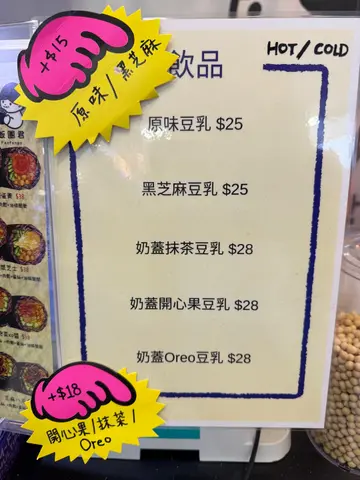 +$15
原味/黑芝麻
飲品
HOT/COLD
原味豆乳 $25
黑芝麻豆乳 $25
奶蓋抹茶豆乳 $28
奶蓋開心果豆乳 $28
奶蓋Oreo豆乳 $28
飯團君
+$18
開心果/抹茶/
Oreo